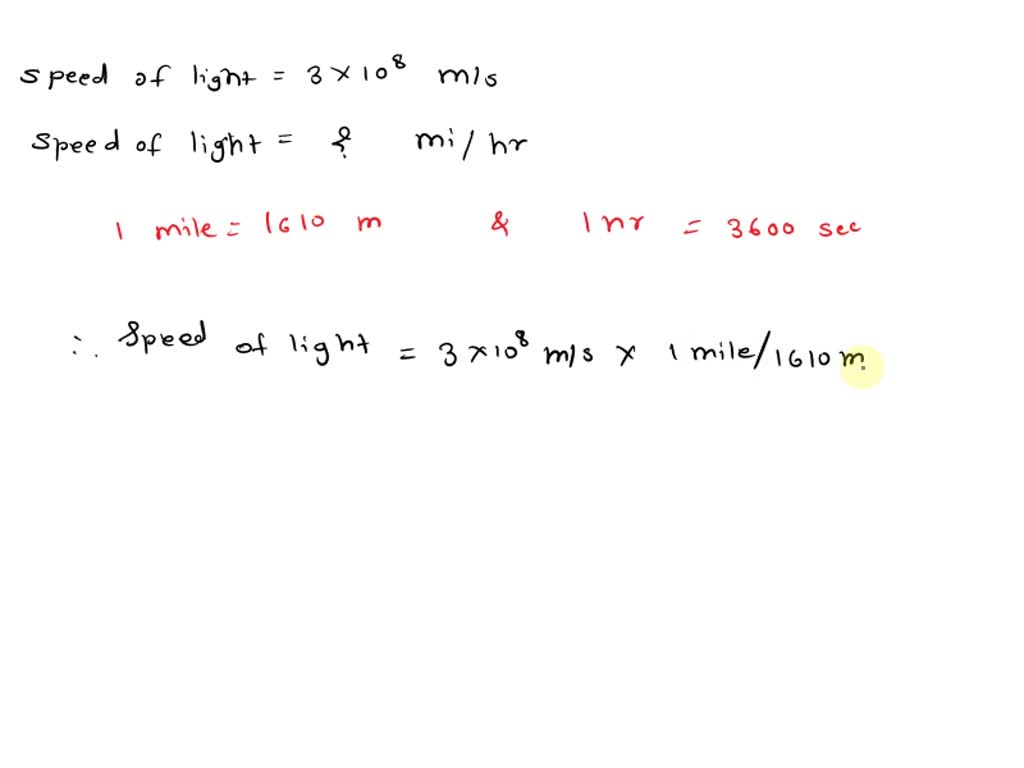 speed of light = 3 × 10⁸ m/s
speed of light = ? mi/hr
1 mile = 1610 m & 1 hr = 3600 sec
∴ Speed of light = 3 × 10⁸ m/s × 1 mile/1610 m